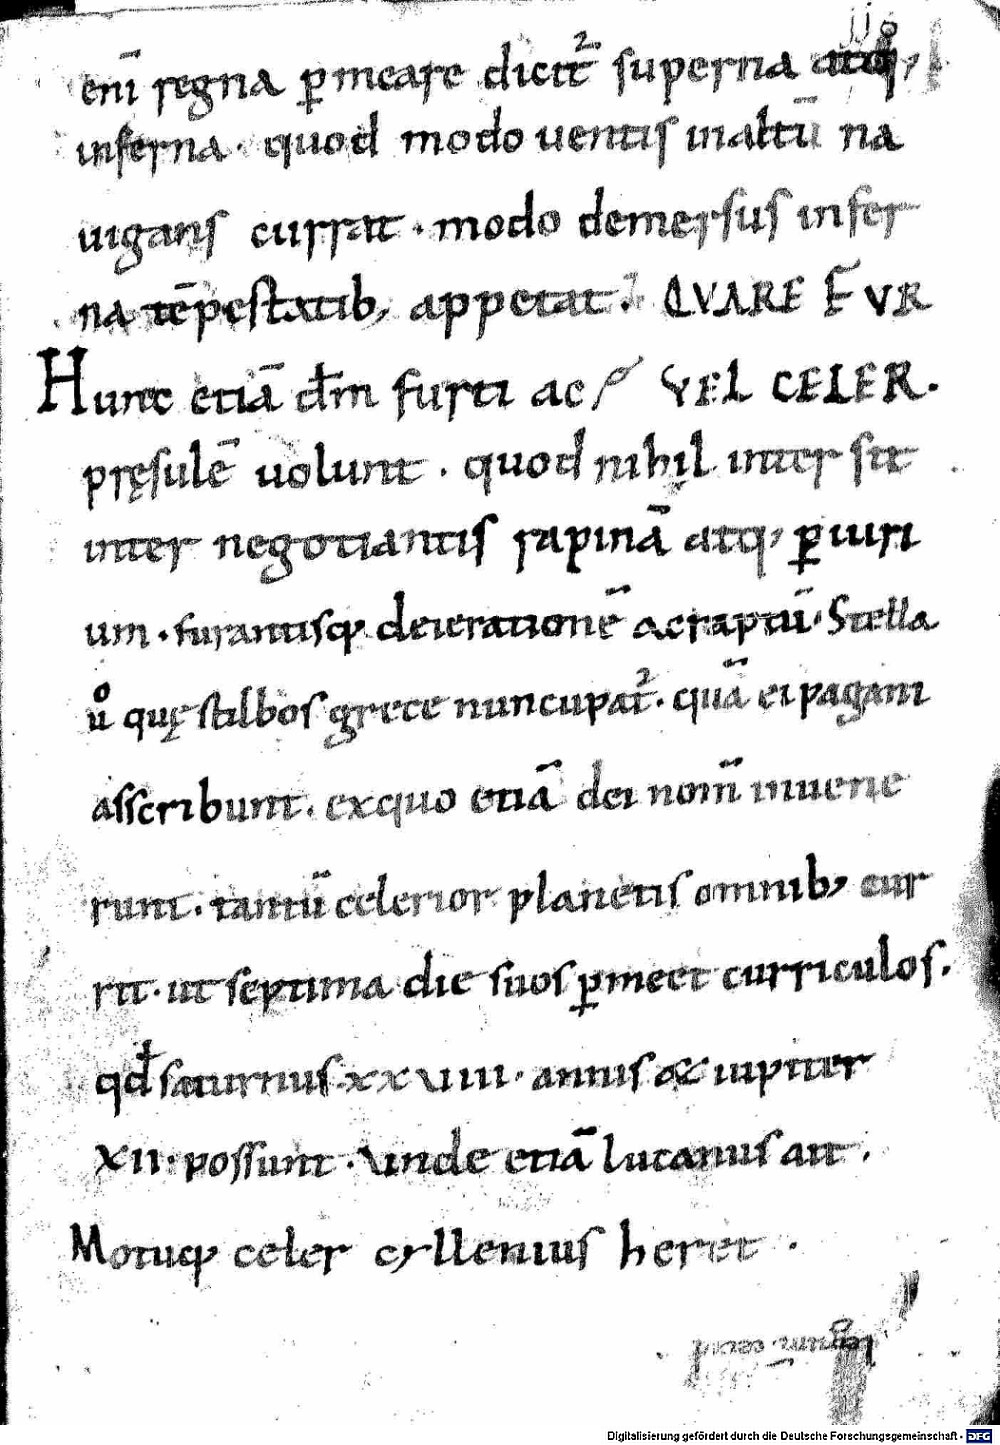 enī regna ꝑmeare dicit᷑ superna atq;
inferna· quod modo uentis inaltū na
uigans currat· modo demersus infer
na tēpestatib; appetat. QVARE FVR
Hunc etiā dm̄ furti ac VEL CELER.
pręsulē uolunt· quod nihil inter sit
inter negotiantis rapinā atq; ꝑiuri
um· furantisq; deierationē ac raptū· Stella
uͦ quę stilbos grece nuncupat᷑· quā ei pagani
asscribunt· exquo etiā dei nom̄ inuene
runt· tantū celerior planetis omnib; cur
rit· ut septima die suos ꝑmeet curriculos.
qđ saturnus xxuiii· annis & iupiter
xii· possunt· Vnde etiā lucanus ait·
Motuq; celer cyllenius heret·
Digitalisierung gefördert durch die Deutsche Forschungsgemeinschaft - DFG